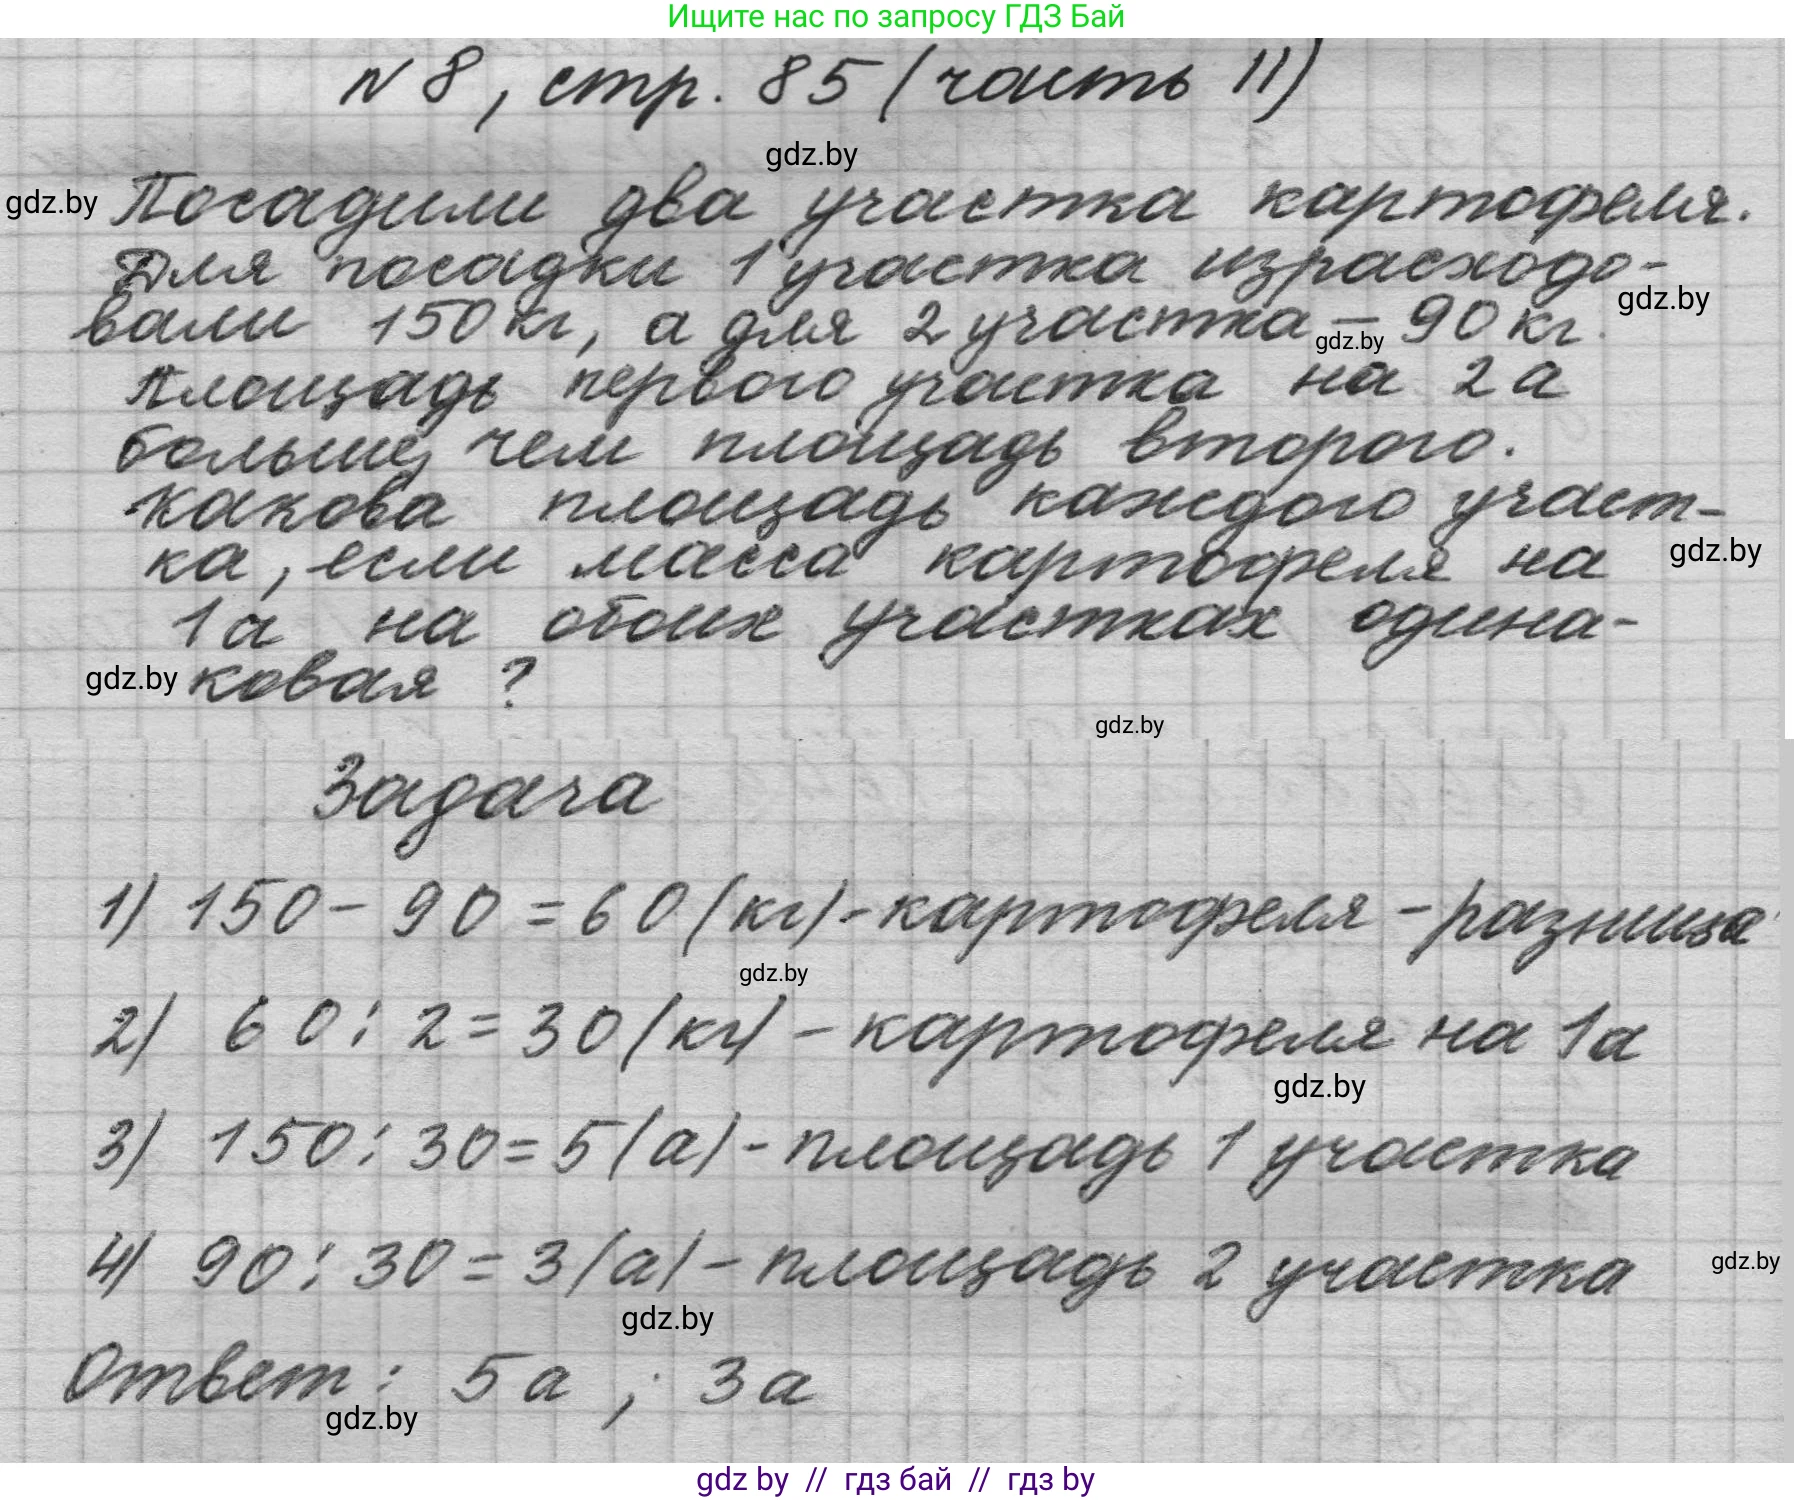 Ищите нас по запросу ГДЗ Бай
N 8, стр. 85 (часть II)
gdz.by
gdz.by
Посадили два участка картофеля.
Для посадки 1 участка израсходо-
gdz.by
вали 150 кг, а для 2 участка – 90 кг.
gdz.by
Площадь первого участка на 2 а
больше, чем площадь второго.
Какова площадь каждого участ-
ка, если масса картофеля на
gdz.by
1 а на обоих участках одина-
gdz.by
ковая ?
gdz.by
Задача
1) 150 - 90 = 60 (кг) - картофеля - разница
gdz.by
2) 60 : 2 = 30 (кг) - картофеля на 1а
gdz.by
3) 150 : 30 = 5 (а) - площадь 1 участка
4) 90 : 30 = 3 (а) - площадь 2 участка
gdz.by
gdz.by
Ответ : 5 а ; 3 а
gdz.by
gdz by // гдз бай // гдз by